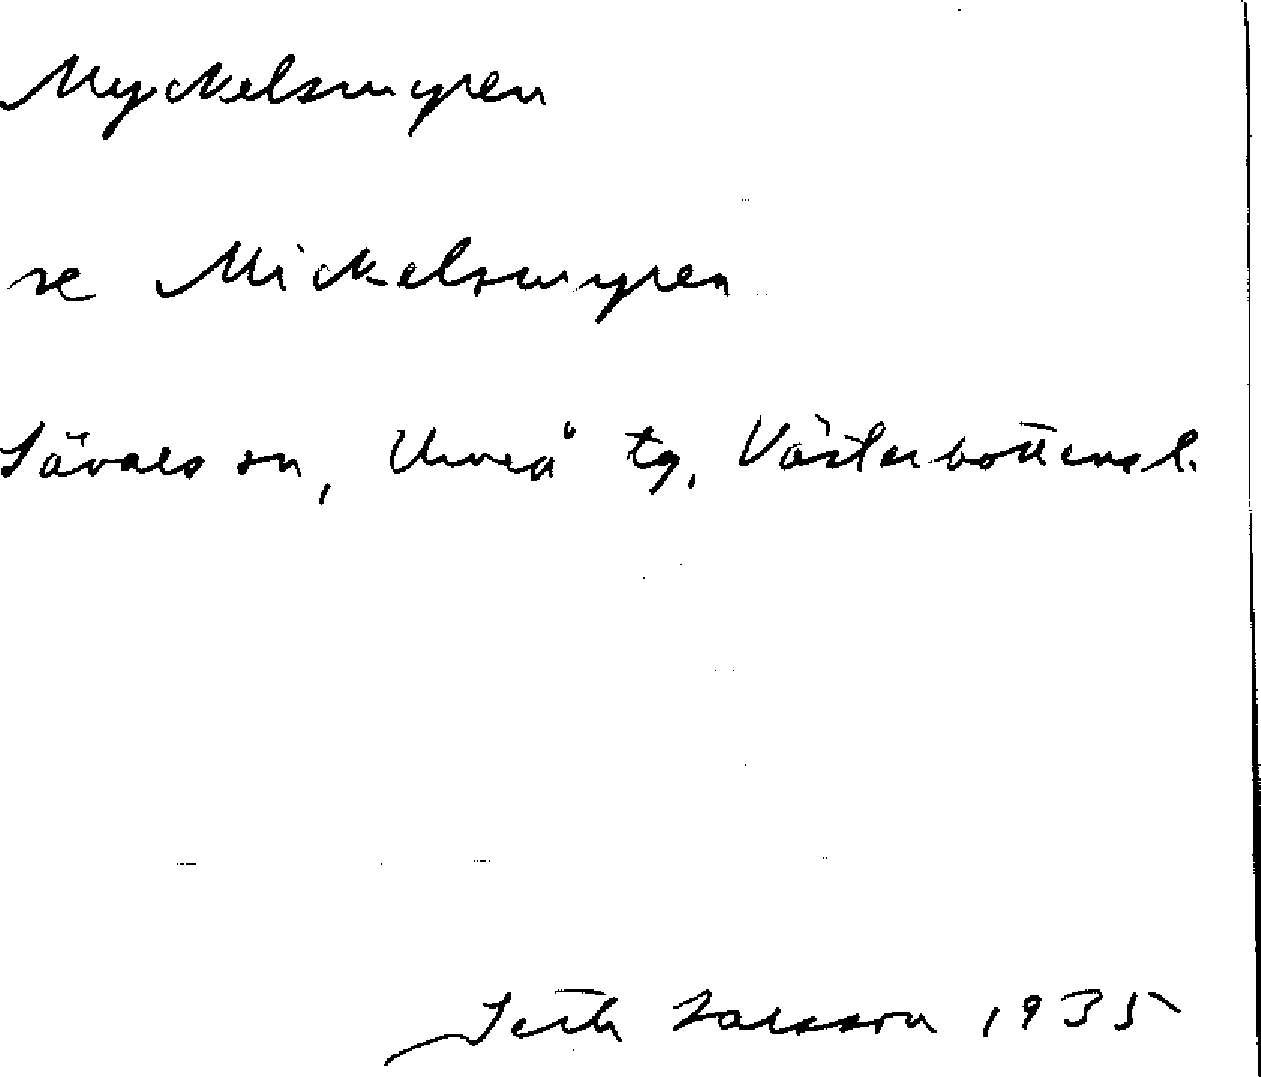 Myckelsmyren
se Mickelsmyren
Sävars sn, Umeå tg, Västerbottens l.
Seth Larsson 1935